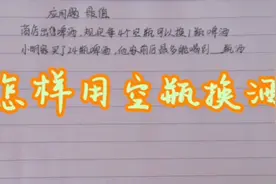 应用题 最值
商店出售啤酒，规定每4个空瓶可以换1瓶啤酒
小明家买了24瓶啤酒，他家前后最多能喝到__瓶酒
怎样用空瓶换酒